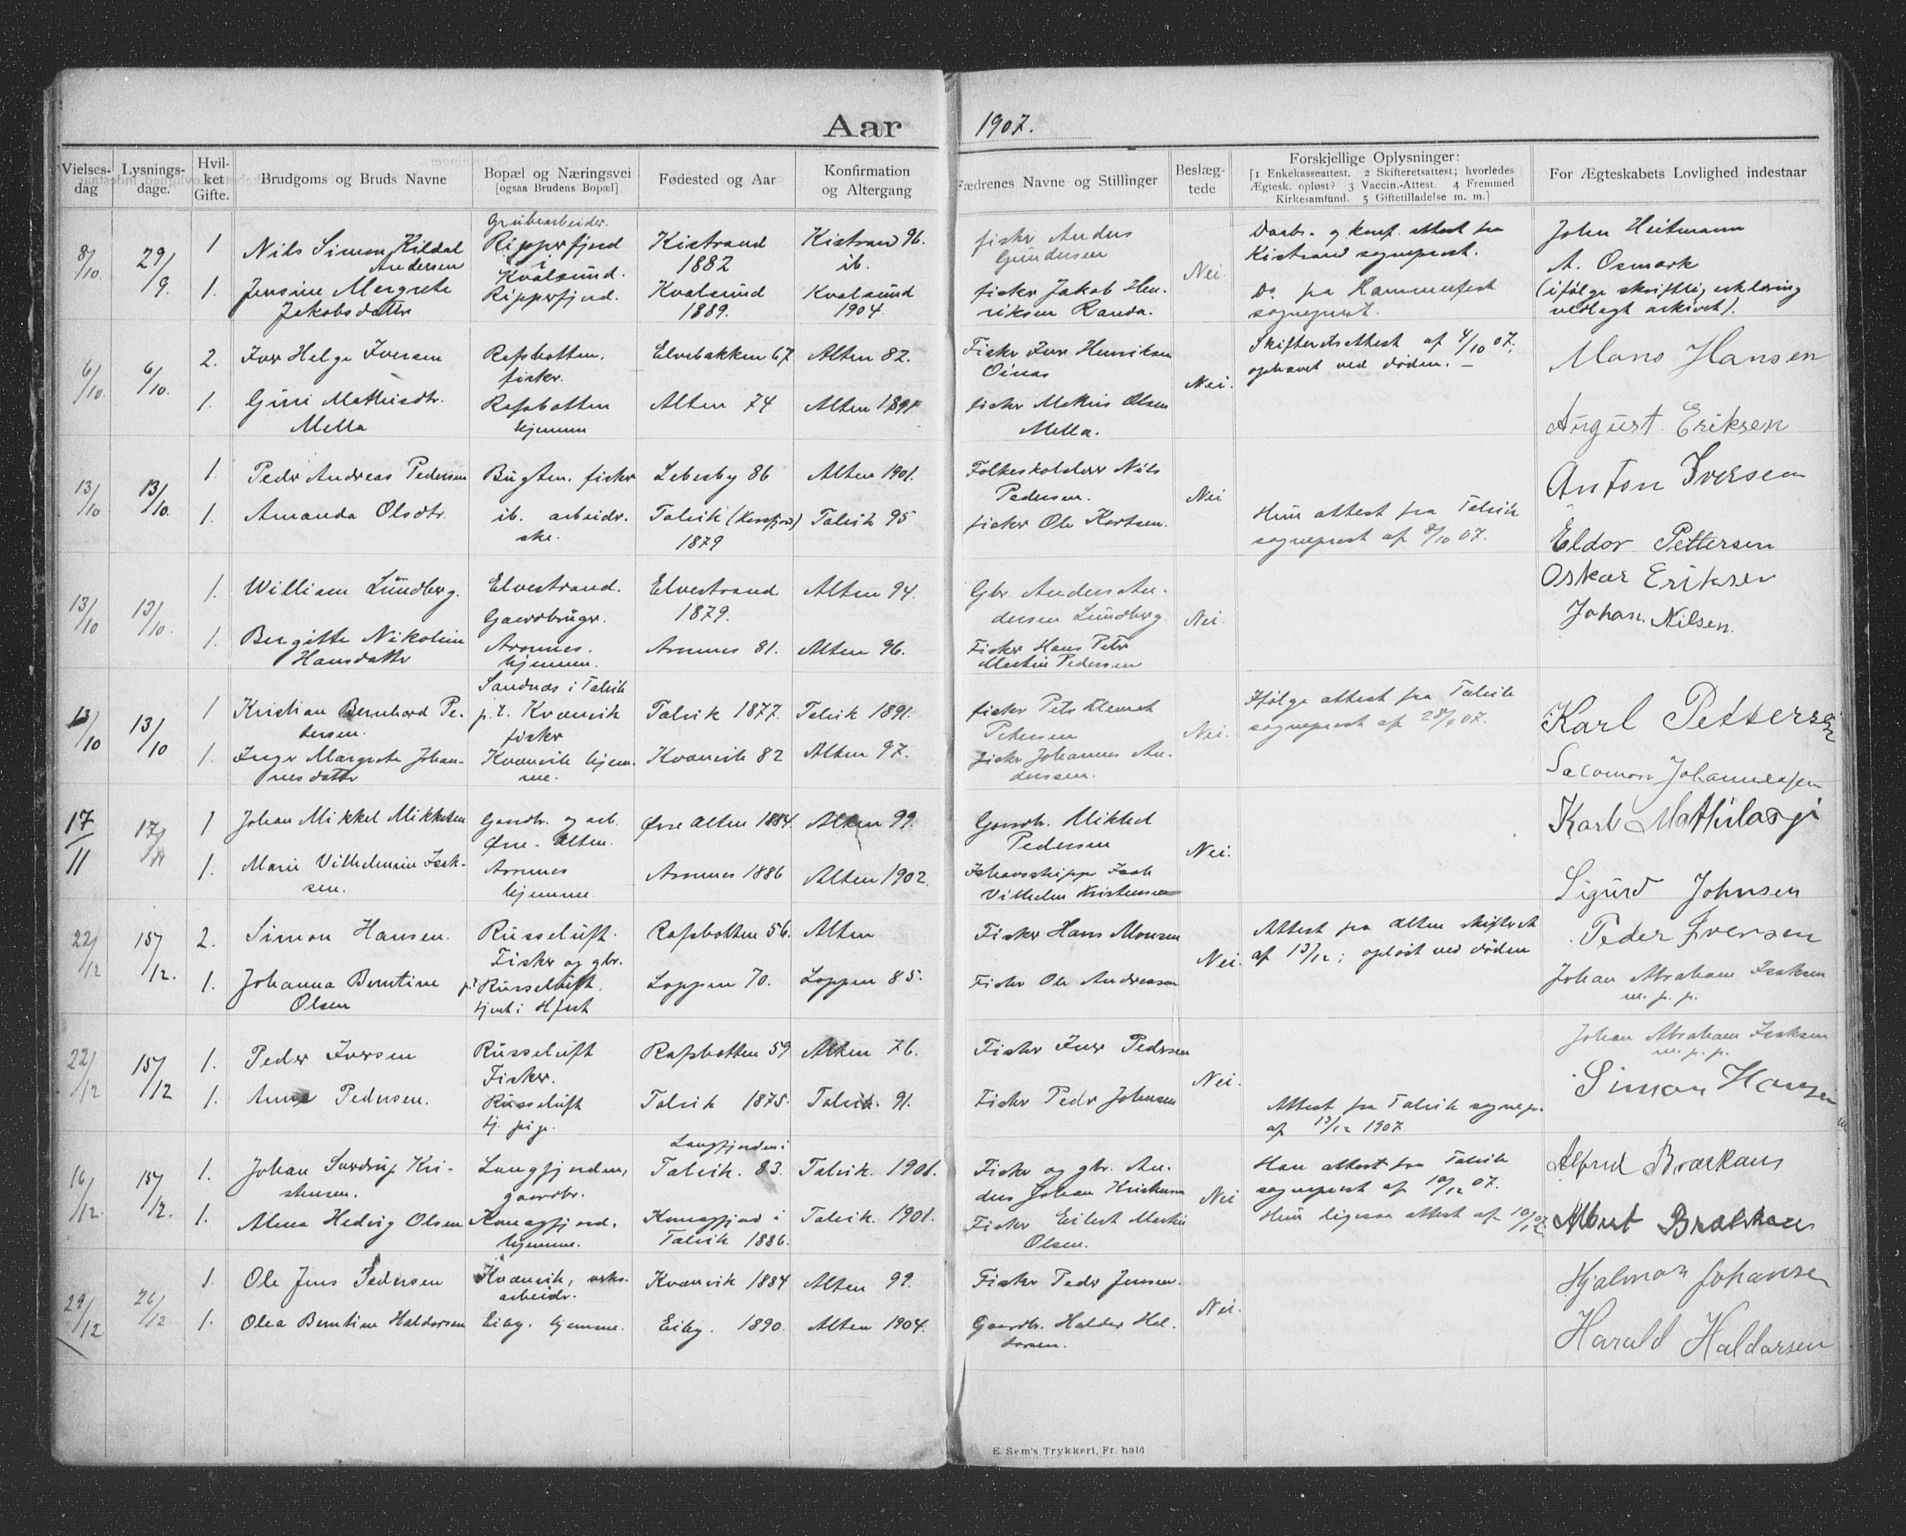 Aar 1907.
Vielses-dag
Lysnings-dage.
Hvil-ket Gifte.
Brudgoms og Bruds Navne
Bopæl og Næringsvei
[ogsaa Brudens Bopæl]
Fødested og Aar
Konfirmation og Altergang
Fædrenes Navne og Stillinger
Beslæg-tede
Forskjellige Oplysninger:
[1 Enkekasseattest. 2 Skifteretsattest; hvorledes
Ægtesk. opløst? 3 Vaccin.-Attest. 4 Fremmed
Kirkesamfund. 5 Giftetilladelse m. m.]
For Ægteskabets Lovlighed indestaar
8/10 29/9 1 Nils Simon Kildal Andersen
Grubearbeider. Ripperfjord i Kvalsund.
Kistrand 1882
Kistrand 96. ib.
fisker Anders Gundersen
Nei.
Daabs- og konf. attest fra Kistrand sogneprest.
John Heitmann
A. Osmark
(ifølge skriftlig erklæring vedlagt arkivet).
1. Jensine Margrete Jakobsdatter
Ripperfjord.
Kvalsund 1889.
Kvalsund 1904.
fisker Jakob Henriksen Randa.
Do fra Hammerfest sogneprest.
6/10 6/10. 2. Iver Helge Iversen
Rafsbotten. fisker.
Elvebakken 67
Alten 82.
Fisker Iver Henriksen Oinas
Nei.
Skifteretsattest af 4/10 07. ophævet ved døden. –
Mons Hansen
1. Gini Mathisdtr. Mella
Rafsbotten hjemme
Alten 74
Alten 1891
fisker Mathis Olsen Mella.
August Eriksen
13/10 13/10. 1. Peder Andreas Pedersen
Bugten. fisker
Lebesby 86
Alten 1901.
Folkeskolelærer Nils Pedersen.
Nei
Anton Iversen
1. Amanda Olsdtr.
ib. arbeiderske.
Talvik (Korsfjord) 1879
Talvik 95
fisker Ole Kortsen.
Hun attest fra Talvik sogneprest af 8/10 07.
Eldor Pettersen
13/10 13/10. 1. William Lundberg.
Elvestrand. Gaardbruger.
Elvestrand 1879.
Alten 94.
Gbr. Anders Andersen Lundberg.
Nei.
Oskar Eriksen
1. Bergitte Nikoline Hansdatter
Aronnes. hjemme.
Aronnes 81.
Alten 96.
Fisker Hans Peter Martin Pedersen
Johan. Nilsen.
13/10 13/10 1 Kristian Bernhard Petersen.
Sandnæs i Talvik p. t. Kvænvik fisker
Talvik 1877.
Talvik 1891.
fisker Peter Klemet Petersen
Nei.
Ifølge attest fra Talvik sogneprest af 28/9 07.
Karl Pettersen
1. Inger Margrete Johannesdatter
Kvænvik hjemme.
Kvænvik 82
Alten 97.
fisker Johannes Anderssen.
Salomon Johannessen
17/11 17/11 1 Johan Mikkel Mikkelsen
Gaardbr. og arb. Øvre-Alten.
Øvre Alten 1884.
Alten 99.
Gaardbr. Mikkel Pedersen
Nei.
Karl Mathilasi
1. Marie Vilhelmine Isaksen.
Aronnes hjemme.
Aronnes 1886
Alten 1902.
Ishavsskipper Isak Vilhelm Kristensen
Sigurd Johnsen
22/12 15/12. 2. Simon Hansen.
Russeluft. Fisker og gbr.
Rafsbotten 56.
Alten
Fisker Hans Monsen
Nei.
Attest fra Alten skifteret af 13/12; opløst ved døden
Peder Iversen
1. Johanna Berntine Olsen
Russeluft. tjent i Hfest
Loppen 70.
Loppen 85.
Fisker Ole Andreasen
Johan Abraham Isaksen
m. p. p.
22/12 15/12 1. Peder Iversen
Russeluft Fisker.
Rafsbotten 59
Alten 76.
Fisker Iver Pedersen
Nei.
Johan Abraham Isaksen
m. p. p.
1. Anne Pedersen.
Russeluft tj. pige.
Talvik 1875.
Talvik. 91.
Fisker Peder Johnsen
Attest fra Talvik sognepr. af 13/12 1907.
Simon Hansen
16/12. 15/12. 1. Johan Sverdrup Kristensen.
Langfjorden, gaardbr.
Langfjorden i Talvik. 83.
Talvik. 1901.
Fisker og gbr. Anders Johan Kristensen
Nei
Han attest fra Talvik sogneprest af 10/12 07.
Alfred Brækans
1. Alma Hedvig Olsen
Komagfjord. hjemme.
Komagfjord i Talvik 1886.
Talvik. 1901.
Fisker Eilert Martin Olsen.
Hun ligesaa attest af 10/12 07.
Albert Brækkan
29/12 26/12 1. Ole Jens Pedersen
Kvænvik, arbeider.
Kvænvik 1884
Alten 99.
Fisker Peder Jensen.
Nei.
Hjalmar Johansen
1. Olea Berntine Haldorsen
Eiby. hjemme.
Eiby. 1890.
Alten 1904.
Gaardbr. Haldor Haldorsen.
Harald Haldorsen
E. Sem's Trykkeri, Fr.hald